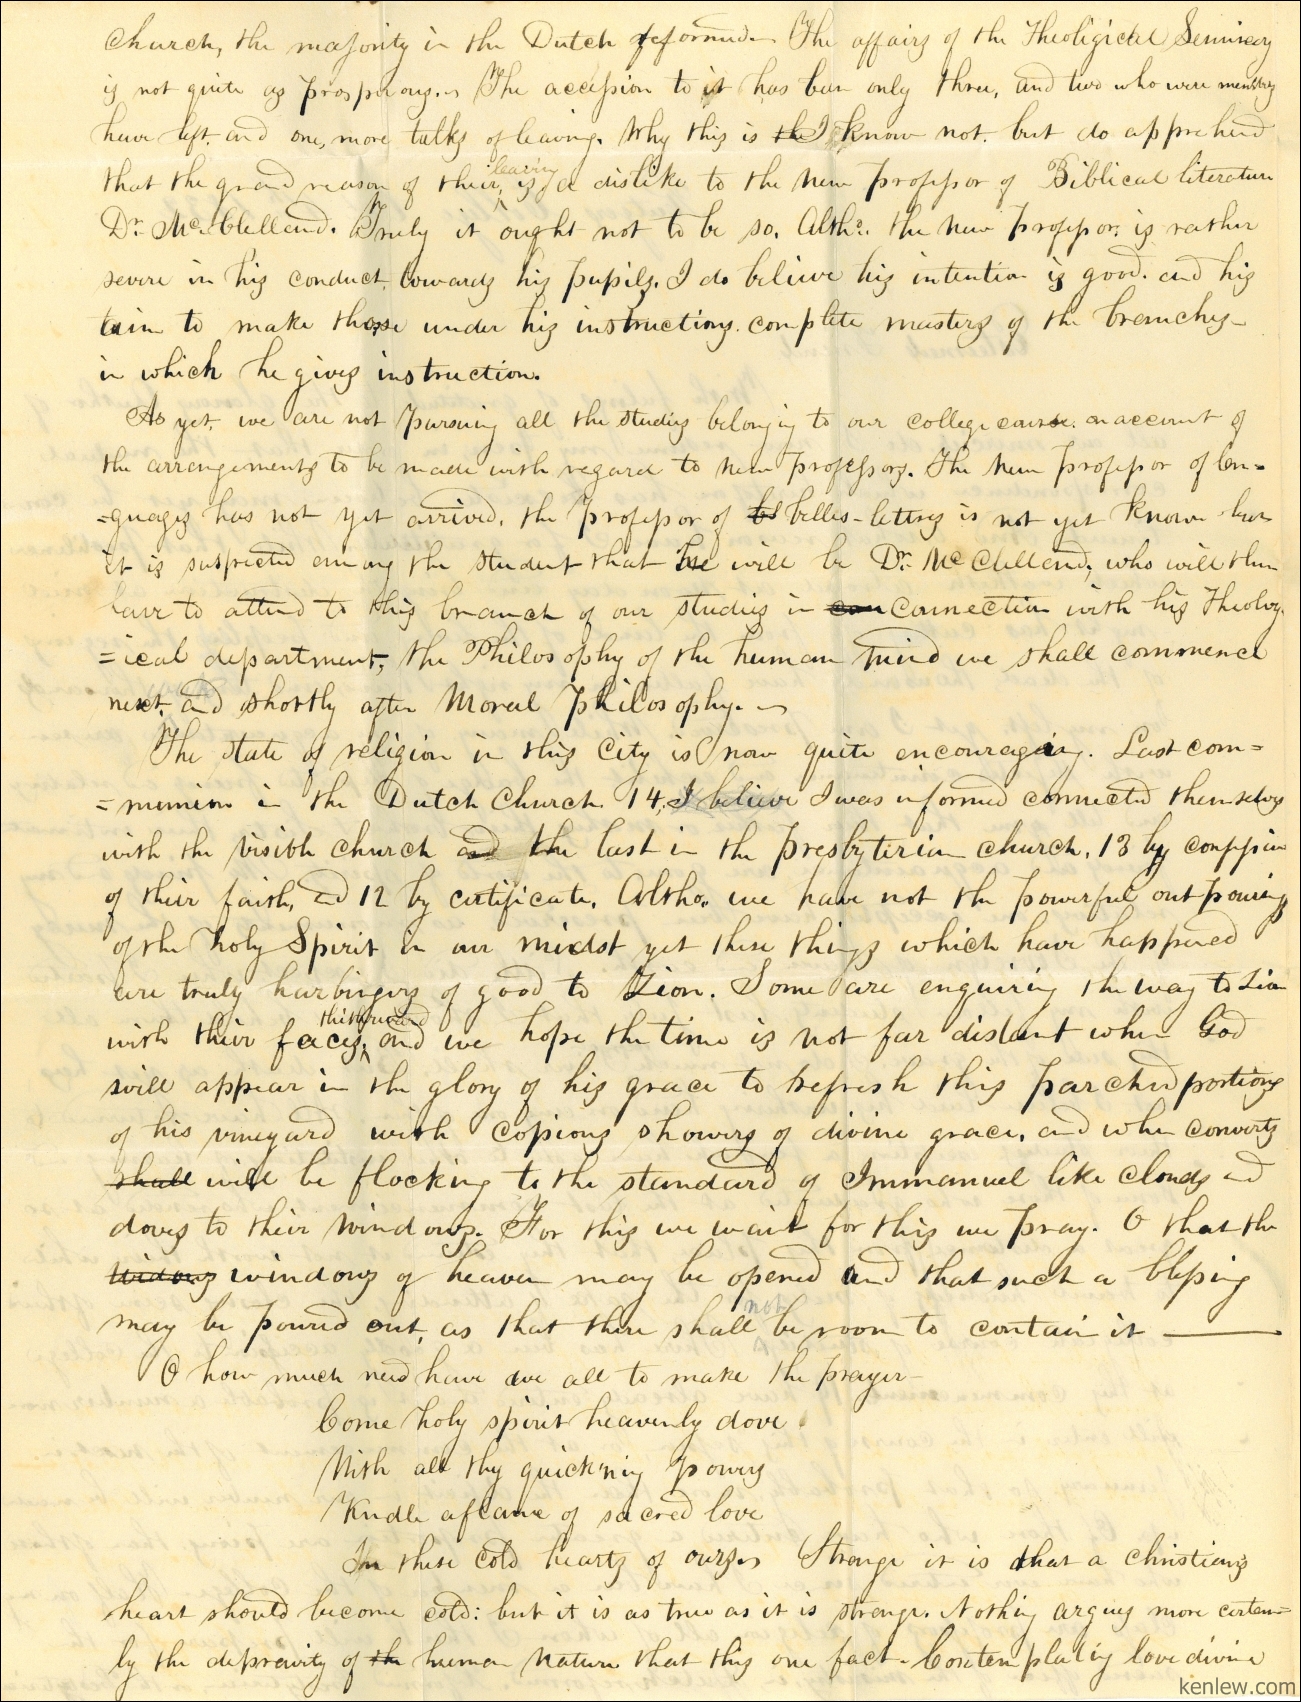 church, the majority in the Dutch reformed. The affairs of the Theoligical Seminary
is not quite as prosperous. The accession to it has been only three, and two who were members
have left, and one, more talks of leaving. Why this is the I know not, but do apprehend
that the grand reason of their leaving is a dislike to the new Professor of Biblical literature
Dr. McClelland. Truly it ought not to be so. Altho. the new Professor, is rather
severe in his conduct towards his pupils, I do believe his intention is good. and his
aim to make those under his instructions. complete masters of the branches
in which he gives instruction.
As yet, we are not pursuing all the studies belonging to our college course. on account of
the arrangements to be made with regard to new professors. The new professor of lan=
=guages has not yet arrived, the Professor of bs belles-letters is not yet known but
it is suspected among the student that he will be Dr. McClelland, who will then
have to attend to this branch of our studies in con connection with his Theolog=
=ical department, the Philosophy of the human mind we shall commence
next, and shortly after Moral Philosophy.
The state of religion in this City is now quite encouraging. Last com=
=munion in the Dutch Church 14, I believe I was informed connected themselves
with the visible church and the last in the Presbyterian church, 13 by confession
of their faith, and 12 by certificate. Altho. we have not the powerful out pourings
of the holy Spirit in our midst yet these things which have happened
are truly harbingers of good to Zion. Some are enquiring the way to Zion
with their faces thitherward, and we hope the time is not far distant when God
will appear in the glory of his grace to refresh this parched portions
of his vineyard with copious showers of divine grace, and when converts
shall will be flocking to the standard of Immanuel like clouds and
doves to their windows. For this we wait for this we pray. O that the
widows windows of heaven may be opened and that such a blessing
may be poured out, as that there shall not be room to contain it
O how much need have we all to make the prayer
Come holy spirit heavenly dove
With all thy quick'ning powers
Kindle a flame of sacred love
In these cold hearts of ours. Strange it is that a christians
heart should become cold: but it is as true as it is strange. Nothing argues more certain=
ly the depravity of the human nature than this one fact. Contemplating love divine
kenlew.com